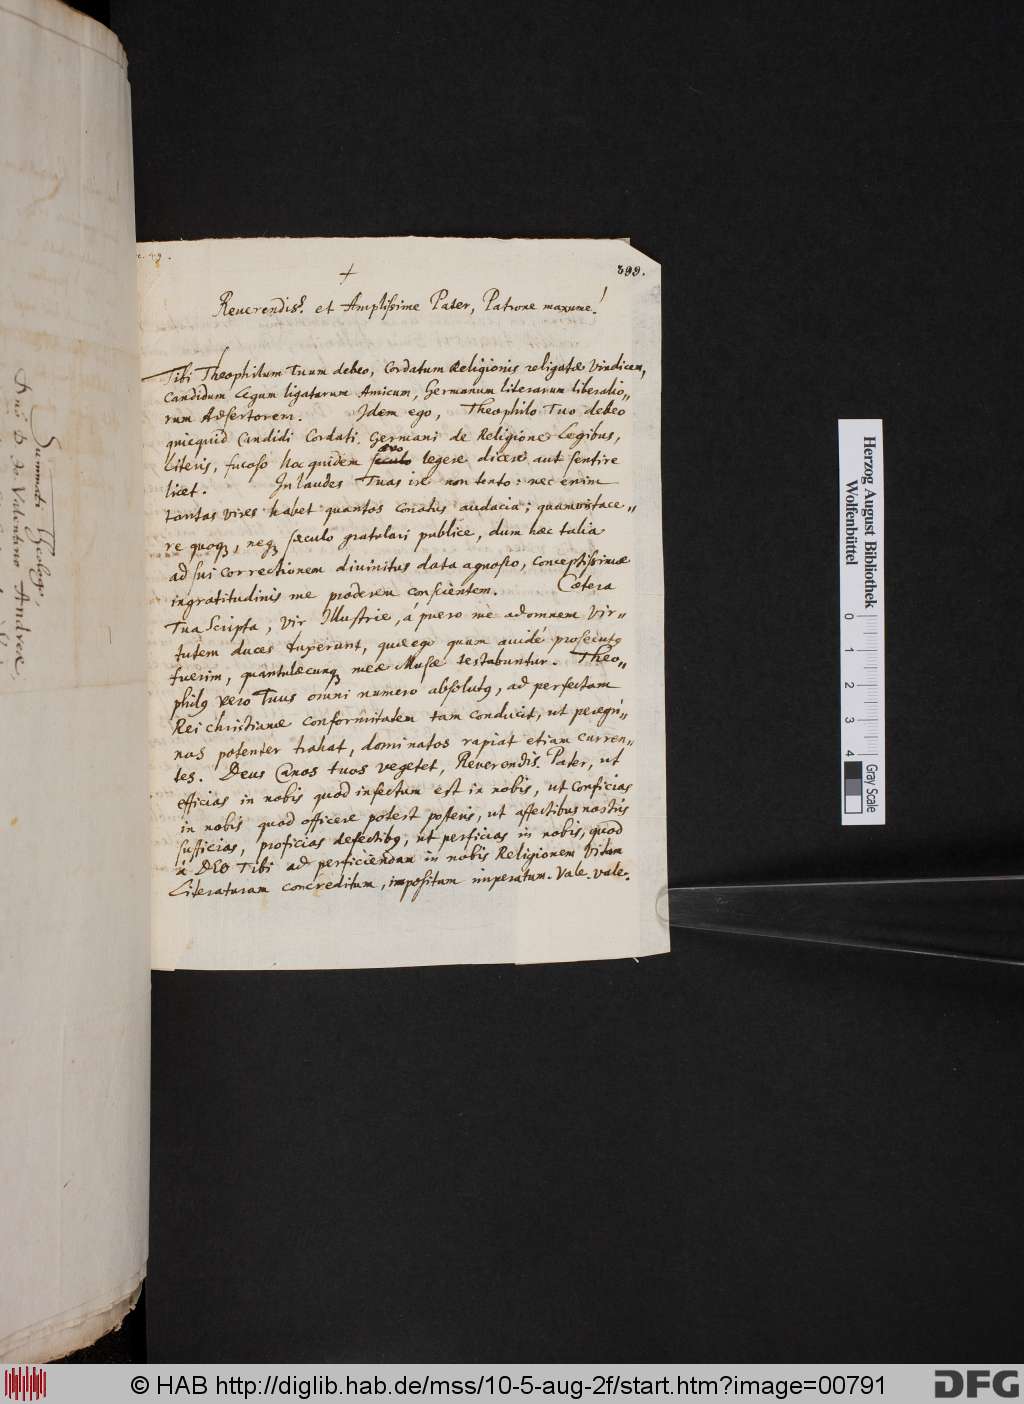 399.
+
Reverendiss. et Amplissime Pater, Patrone maxume!
Tibi Theophilum Tuum debeo, Cordatum Religionis religatæ Vindicem,
Candidum Legum ligatarum Amicum, Germanum literarum liberalio„
rum Adsertorem. Idem ego, Theophilo Tuo debeo
quicquid Candidi Cordati Germani de Religione Legibus,
Literis, fucoso hoc quidem seculo ævo legere dicere aut sentire
licet. In laudes Tuas ire non tento: nec enim
tantas vires habet quantos conatus audacia; quamvis tace„
re quoq₃, neq₃ sæculo gratulari publice, dum hæc talia
ad sui correctionem divinitus data agnosco, conceptissimæ
ingratitudinis me proderem conscientem. Cætera
Tua Scripta, Vir Illustrie, á puero me ad omnem Vir„
tutem duces duxerunt, quæ ego quam avidé prosecutꝯ
fuerim, quantulæcunq₃ meæ Musæ testabuntur. Theo„
philꝯ vero Tuus omni numero absolutꝯ, ad perfectam
Rei christianæ conformitatem tam conducit, ut peregri„
nos potenter trahat, dominatos rapiat etiam curren„
tes. Deus Canos tuos vegetet, Reverendis. Pater, ut
efficias in nobis quod infectum est in nobis, ut conficias
in nobis quod officere potest posteris, ut affectibus nostris
sufficias, proficias defectibꝯ, ut perficias in nobis, quod
à DEO Tibi ad perficiendam in nobis Religionem Vitam
Literaturam concreditum, impositum imperatum. Vale. vale.
Summati Theologo,
Dnō D. Jo. Valentino Andreæ,
Herzog August Bibliothek
Wolfenbüttel
0 1 2 3 4
Gray Scale
© HAB http://diglib.hab.de/mss/10-5-aug-2f/start.htm?image=00791
DFG